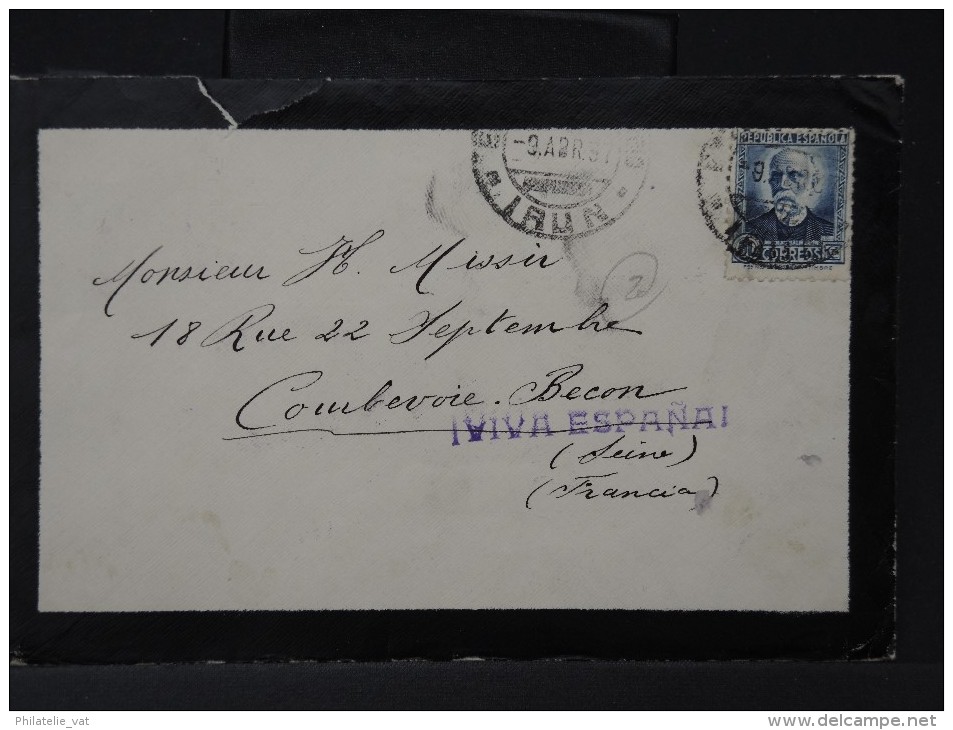 -9.ABR.37
IRUN
-9.
REPUBLICA ESPAÑOLA
CORREOS
2
Monsieur H. Missir
18 Rue 22 Septembre
Courbevoie. Becon
¡VIVA ESPAÑA!
(Seine)
(Francia)
Philatelie_vat
http://www.delcampe.net